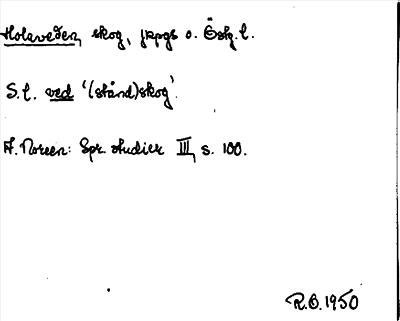 Holaveden, skog, jkpgs o. Östg. l.
S. l. ved '(stånd)skog'.
A. Noreen: Spr. studier III, s. 100.
R.O. 1950